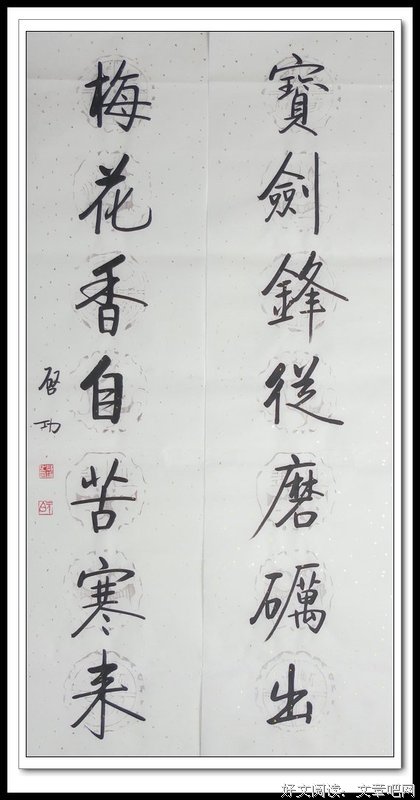 寶劍鋒從磨礪出
梅花香自苦寒来
啓功
好文阅读，文章吧网